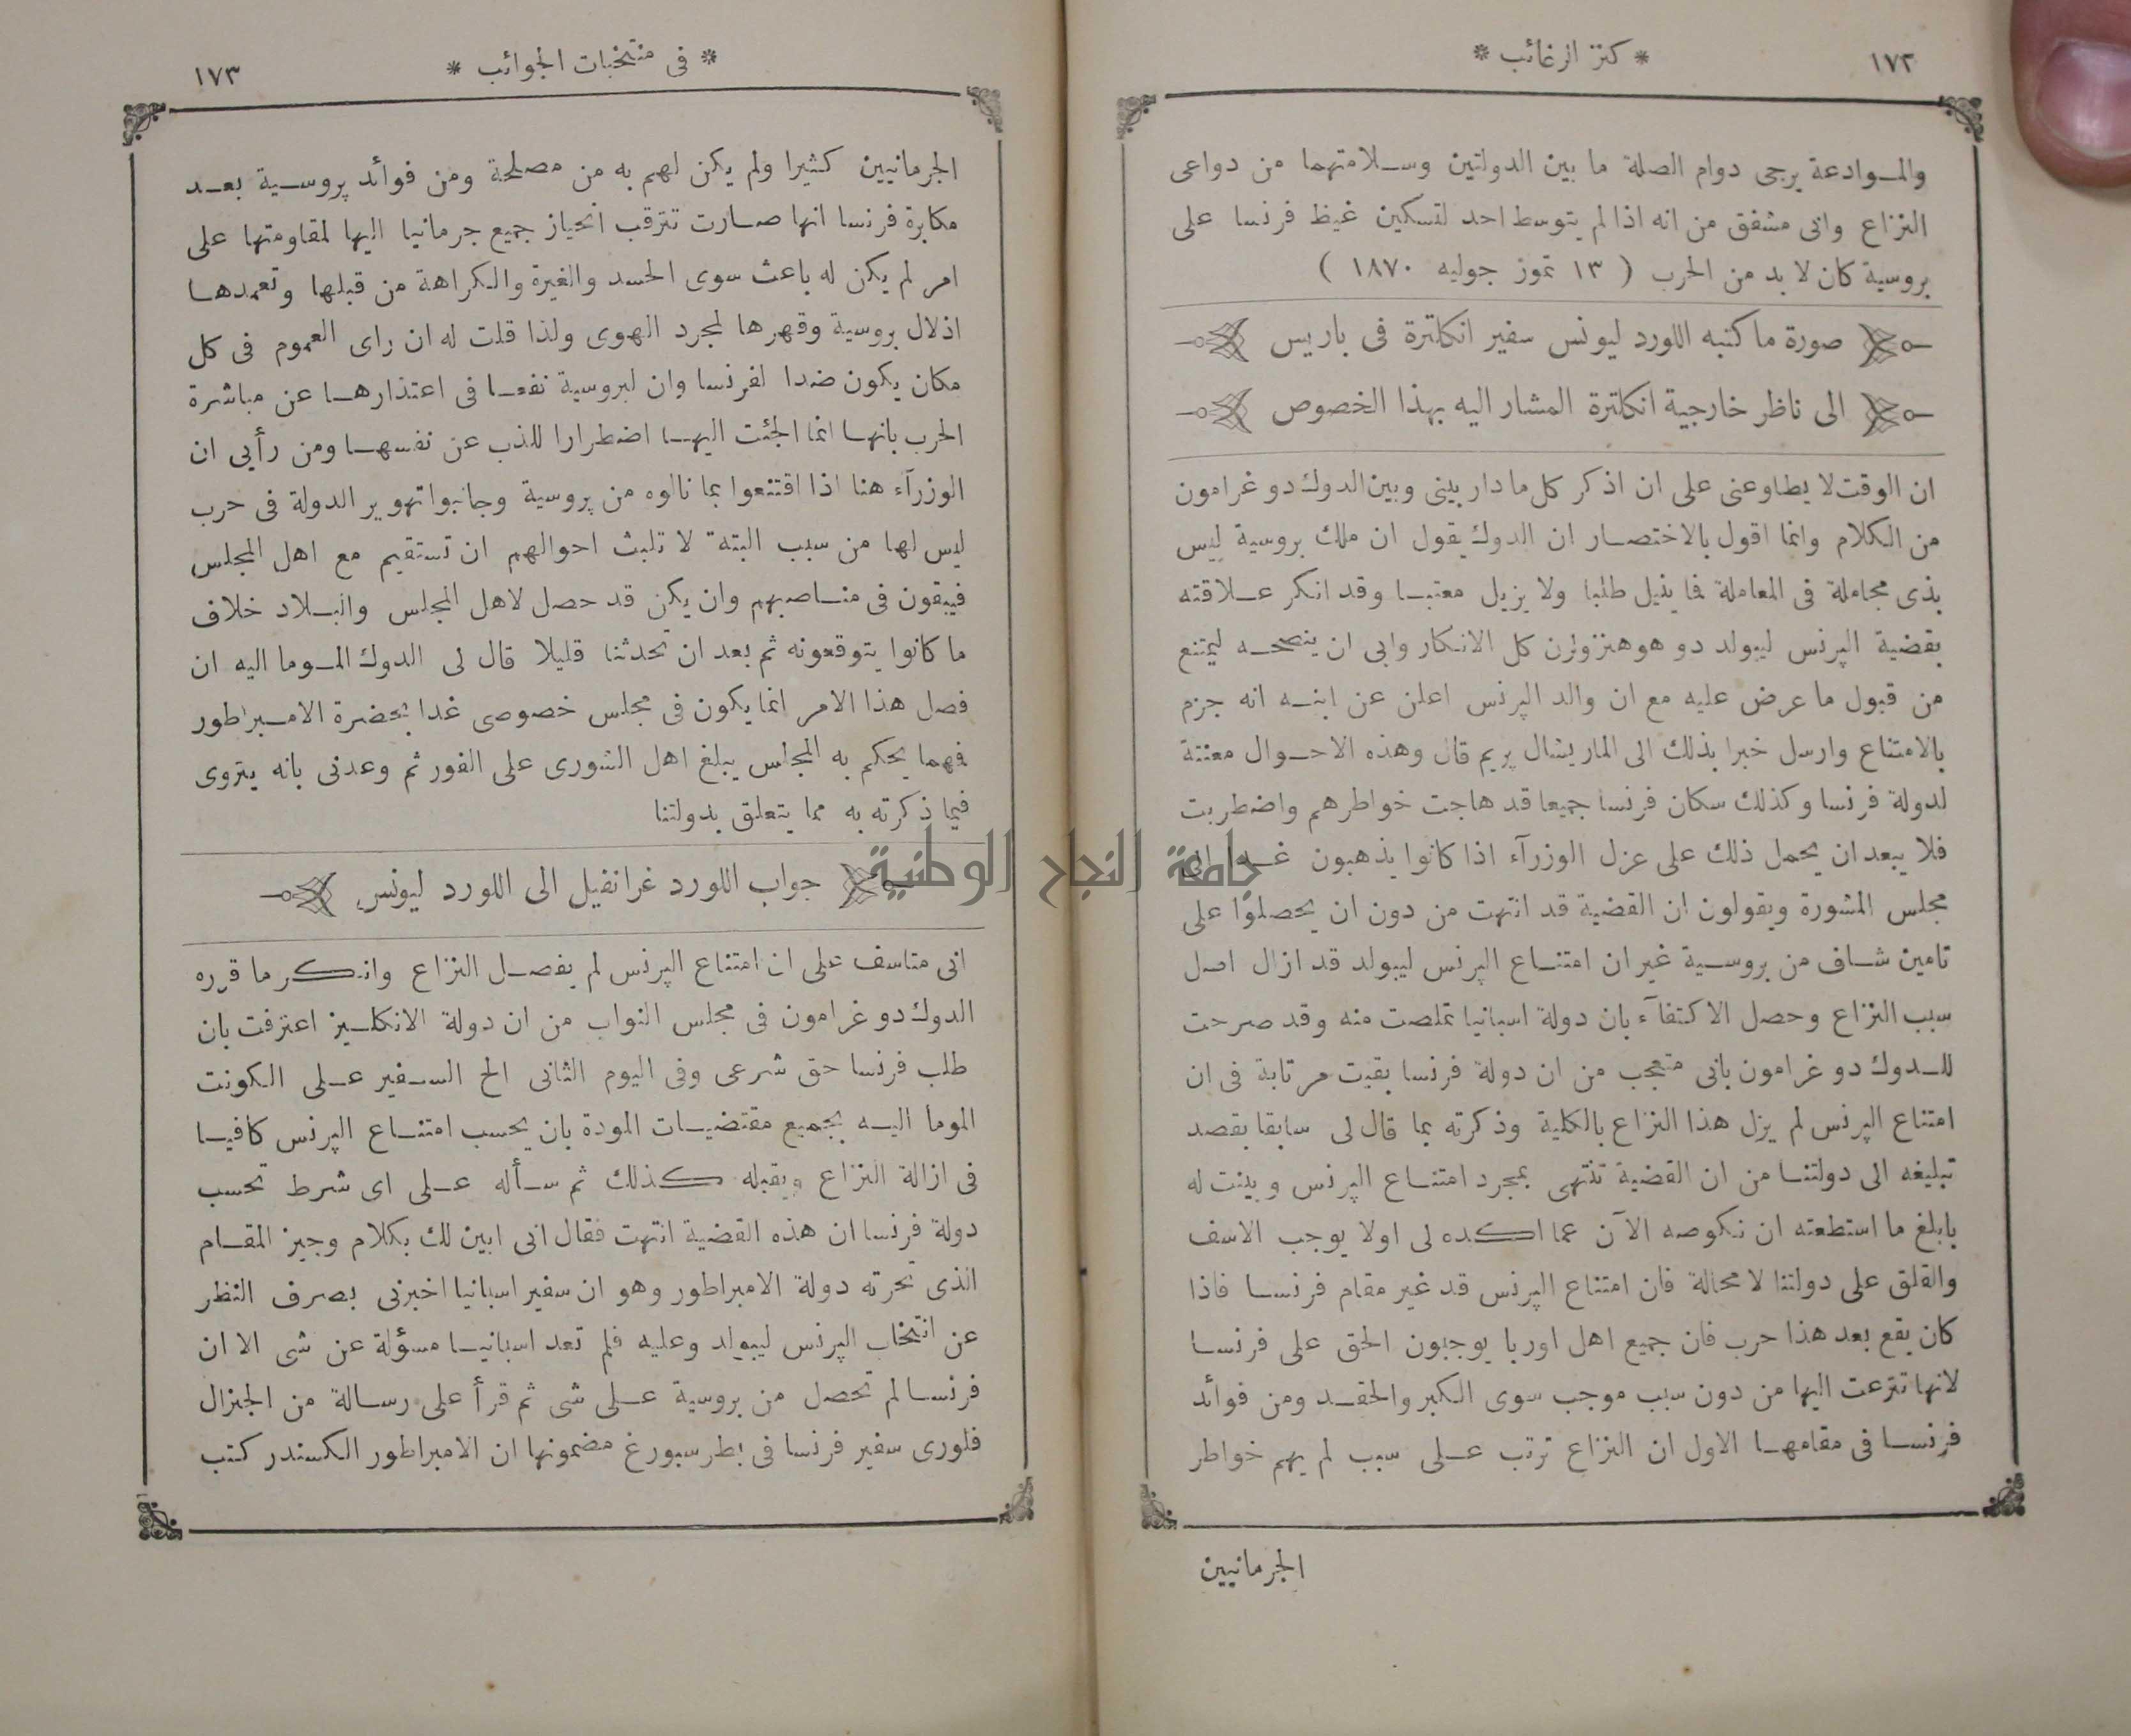 ١٧٢
* كنز الرغائب *
والموادعة يرجى دوام الصلة ما بين الدولتين وسلامتهما من دواعى
النزاع وانى مشفق من انه اذا لم يتوسط احد لتسكين غيظ فرنسا على
بروسية كان لا بد من الحرب ( ١٣ تموز جوليه ١٨٧٠ )
صورة ما كتبه اللورد ليونس سفير انكلترة فى باريس
الى ناظر خارجية انكلترة المشار اليه بهذا الخصوص
ان الوقت لا يطاوعنى على ان اذكر كل ما دار بينى وبين الدوك دو غرامون
من الكلام وانما اقول بالاختصار ان الدوك يقول ان ملك بروسية ليس
بذى مجاملة فى المعاملة فما ينيل طلبا ولا يزيل معتبا وقد انكر علاقته
بقضية البرنس ليبولد دو هوهنزولرن كل الانكار وابى ان ينصحه ليمتنع
من قبول ما عرض عليه مع ان والد البرنس اعلن عن ابنه انه جزم
بالامتناع وارسل خبرا بذلك الى الماريشال پريم قال وهذه الاحوال معنتة
لدولة فرنسا وكذلك سكان فرنسا جميعا قد هاجت خواطرهم واضطربت
فلا يبعد ان يحمل ذلك على عزل الوزرآء اذا كانوا يذهبون غدا الى
مجلس المشورة ويقولون ان القضية قد انتهت من دون ان يحصلوا على
تامين شاف من بروسية غير ان امتناع البرنس ليبولد قد ازال اصل
سبب النزاع وحصل الاكتفآء بان دولة اسبانيا تملصت منه وقد صرحت
للدوك دو غرامون بانى متعجب من ان دولة فرنسا بقيت مرتابة فى ان
امتناع البرنس لم يزل هذا النزاع بالكلية وذكرته بما قال لى سابقا بقصد
تبليغه الى دولتنا من ان القضية تنتهى بمجرد امتناع البرنس وبينت له
بابلغ ما استطعته ان نكوصه الآن عما اكده لى اولا يوجب الاسف
والقلق على دولتنا لا محالة فان امتناع البرنس قد غير مقام فرنسا فاذا
كان يقع بعد هذا حرب فان جميع اهل اوربا يوجبون الحق على فرنسا
لانها تترعت اليها من دون سبب موجب سوى الكبر والحقد ومن فوائد
فرنسا فى مقامها الاول ان النزاع ترتب على سبب لم يهم خواطر
الجرمانيين
* فى منتخبات الجوائب *
١٧٣
الجرمانيين كثيرا ولم يكن لهم به من مصلحة ومن فوائد پروسية بعد
مكابرة فرنسا انها صارت تترقب انحياز جميع جرمانيا اليها لمقاومتها على
امر لم يكن له باعث سوى الحسد والغيرة والكراهة من قبلها وتعمدها
اذلال بروسية وقهرها لمجرد الهوى ولذا قلت له ان راى العموم فى كل
مكان يكون ضدا لفرنسا وان لبروسية نفعا فى اعتذارها عن مباشرة
الحرب بانها انما الجئت اليها اضطرارا للذب عن نفسها ومن رأيى ان
الوزرآء هنا اذا اقتنعوا بما نالوه من پروسية وجانبوا تهوير الدولة فى حرب
ليس لها من سبب البتة لا تلبث احوالهم ان تستقيم مع اهل المجلس
فيبقون فى مناصبهم وان يكن قد حصل لاهل المجلس والبلاد خلاف
ما كانوا يتوقعونه ثم بعد ان تحدثنا قليلا قال لى الدوك الموما اليه ان
فصل هذا الامر انما يكون فى مجلس خصوصى غدا بحضرة الامبراطور
فهما يحكم به المجلس يبلغ اهل الشورى على الفور ثم وعدنى بانه يتروى
فيما ذكرته به مما يتعلق بدولتنا
جامعة النجاح الوطنية
جواب اللورد غرانفيل الى اللورد ليونس
انى متاسف على ان امتناع البرنس لم يفصل النزاع وانكر ما قرره
الدوك دو غرامون فى مجلس النواب من ان دولة الانكليز اعترفت بان
طلب فرنسا حق شرعى وفى اليوم الثانى الح السفير على الكونت
الموما اليه بجميع مقتضيات المودة بان يحسب امتناع البرنس كافيا
فى ازالة النزاع ويقبله كذلك ثم سأله على اى شرط تحسب
دولة فرنسا ان هذه القضية انتهت فقال انى ابين لك بكلام وجيز المقام
الذى تحرته دولة الامبراطور وهو ان سفير اسبانيا اخبرنى بصرف النظر
عن انتخاب البرنس ليبولد وعليه فلم تعد اسبانيا مسؤلة عن شى الا ان
فرنسا لم تحصل من بروسية على شى ثم قرأ على رسالة من الجنرال
فلورى سفير فرنسا فى بطرسبورغ مضمونها ان الامبراطور الكسندر كتب